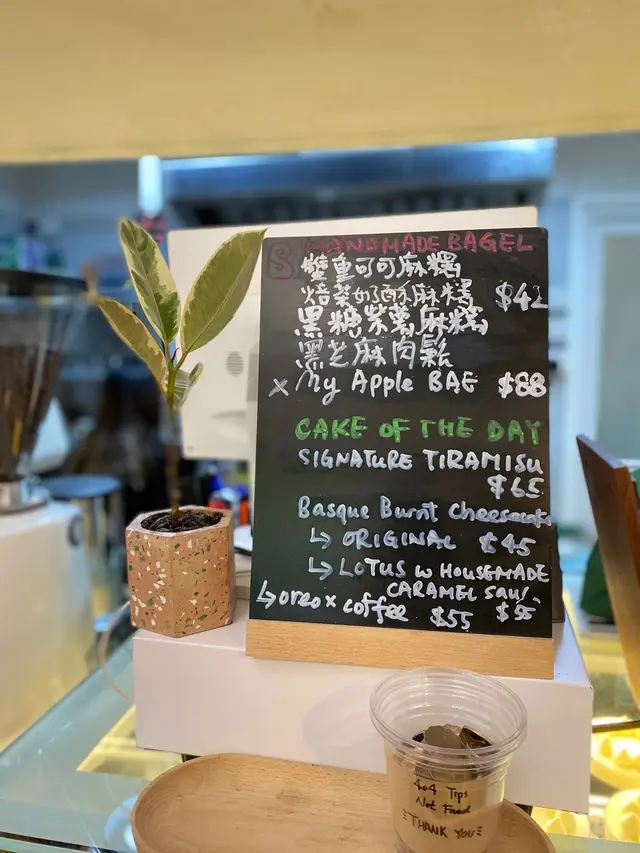 HANDMADE BAGEL
雙重可可麻糬
焙茶奶酥麻糬 $42
黑糖茶萬麻糬
黑芝麻肉鬆
x My Apple BAE $88
CAKE OF THE DAY
SIGNATURE TIRAMISU
$65
Basque Burnt cheesecake
↳ ORIGINAL $45
↳ LOTUS w HOUSEMADE
CARAMEL SAUS. $55
↳ oreo x coffee $55
404 Tips
Not Found
THANK YOU